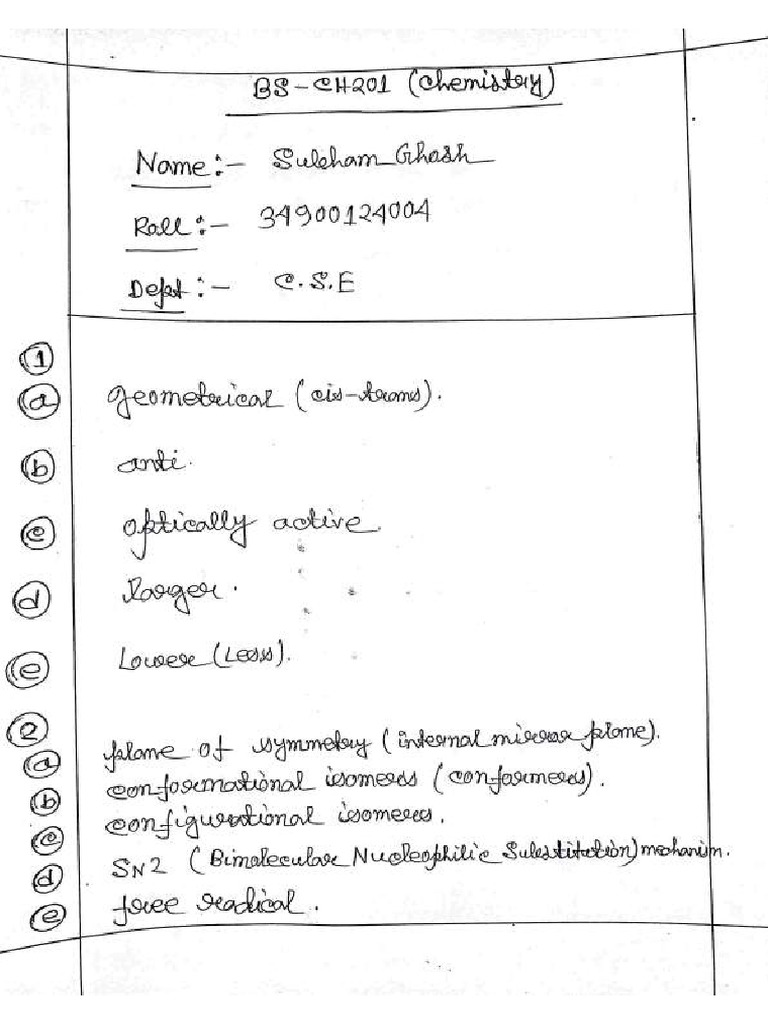 BS-CH201 (Chemistry)
Name:- Subham Ghosh
Roll:- 34900124004
Dept:- C.S.E
1
a geometrical (cis-trans).
b anti.
c optically active
d larger.
e Lower (Less).
2
a plane of symmetry (internal mirror plane).
b conformational isomers (conformers).
c configurational isomers.
d SN2 (Bimolecular Nucleophilic Substitution) mechanism.
e free radical.